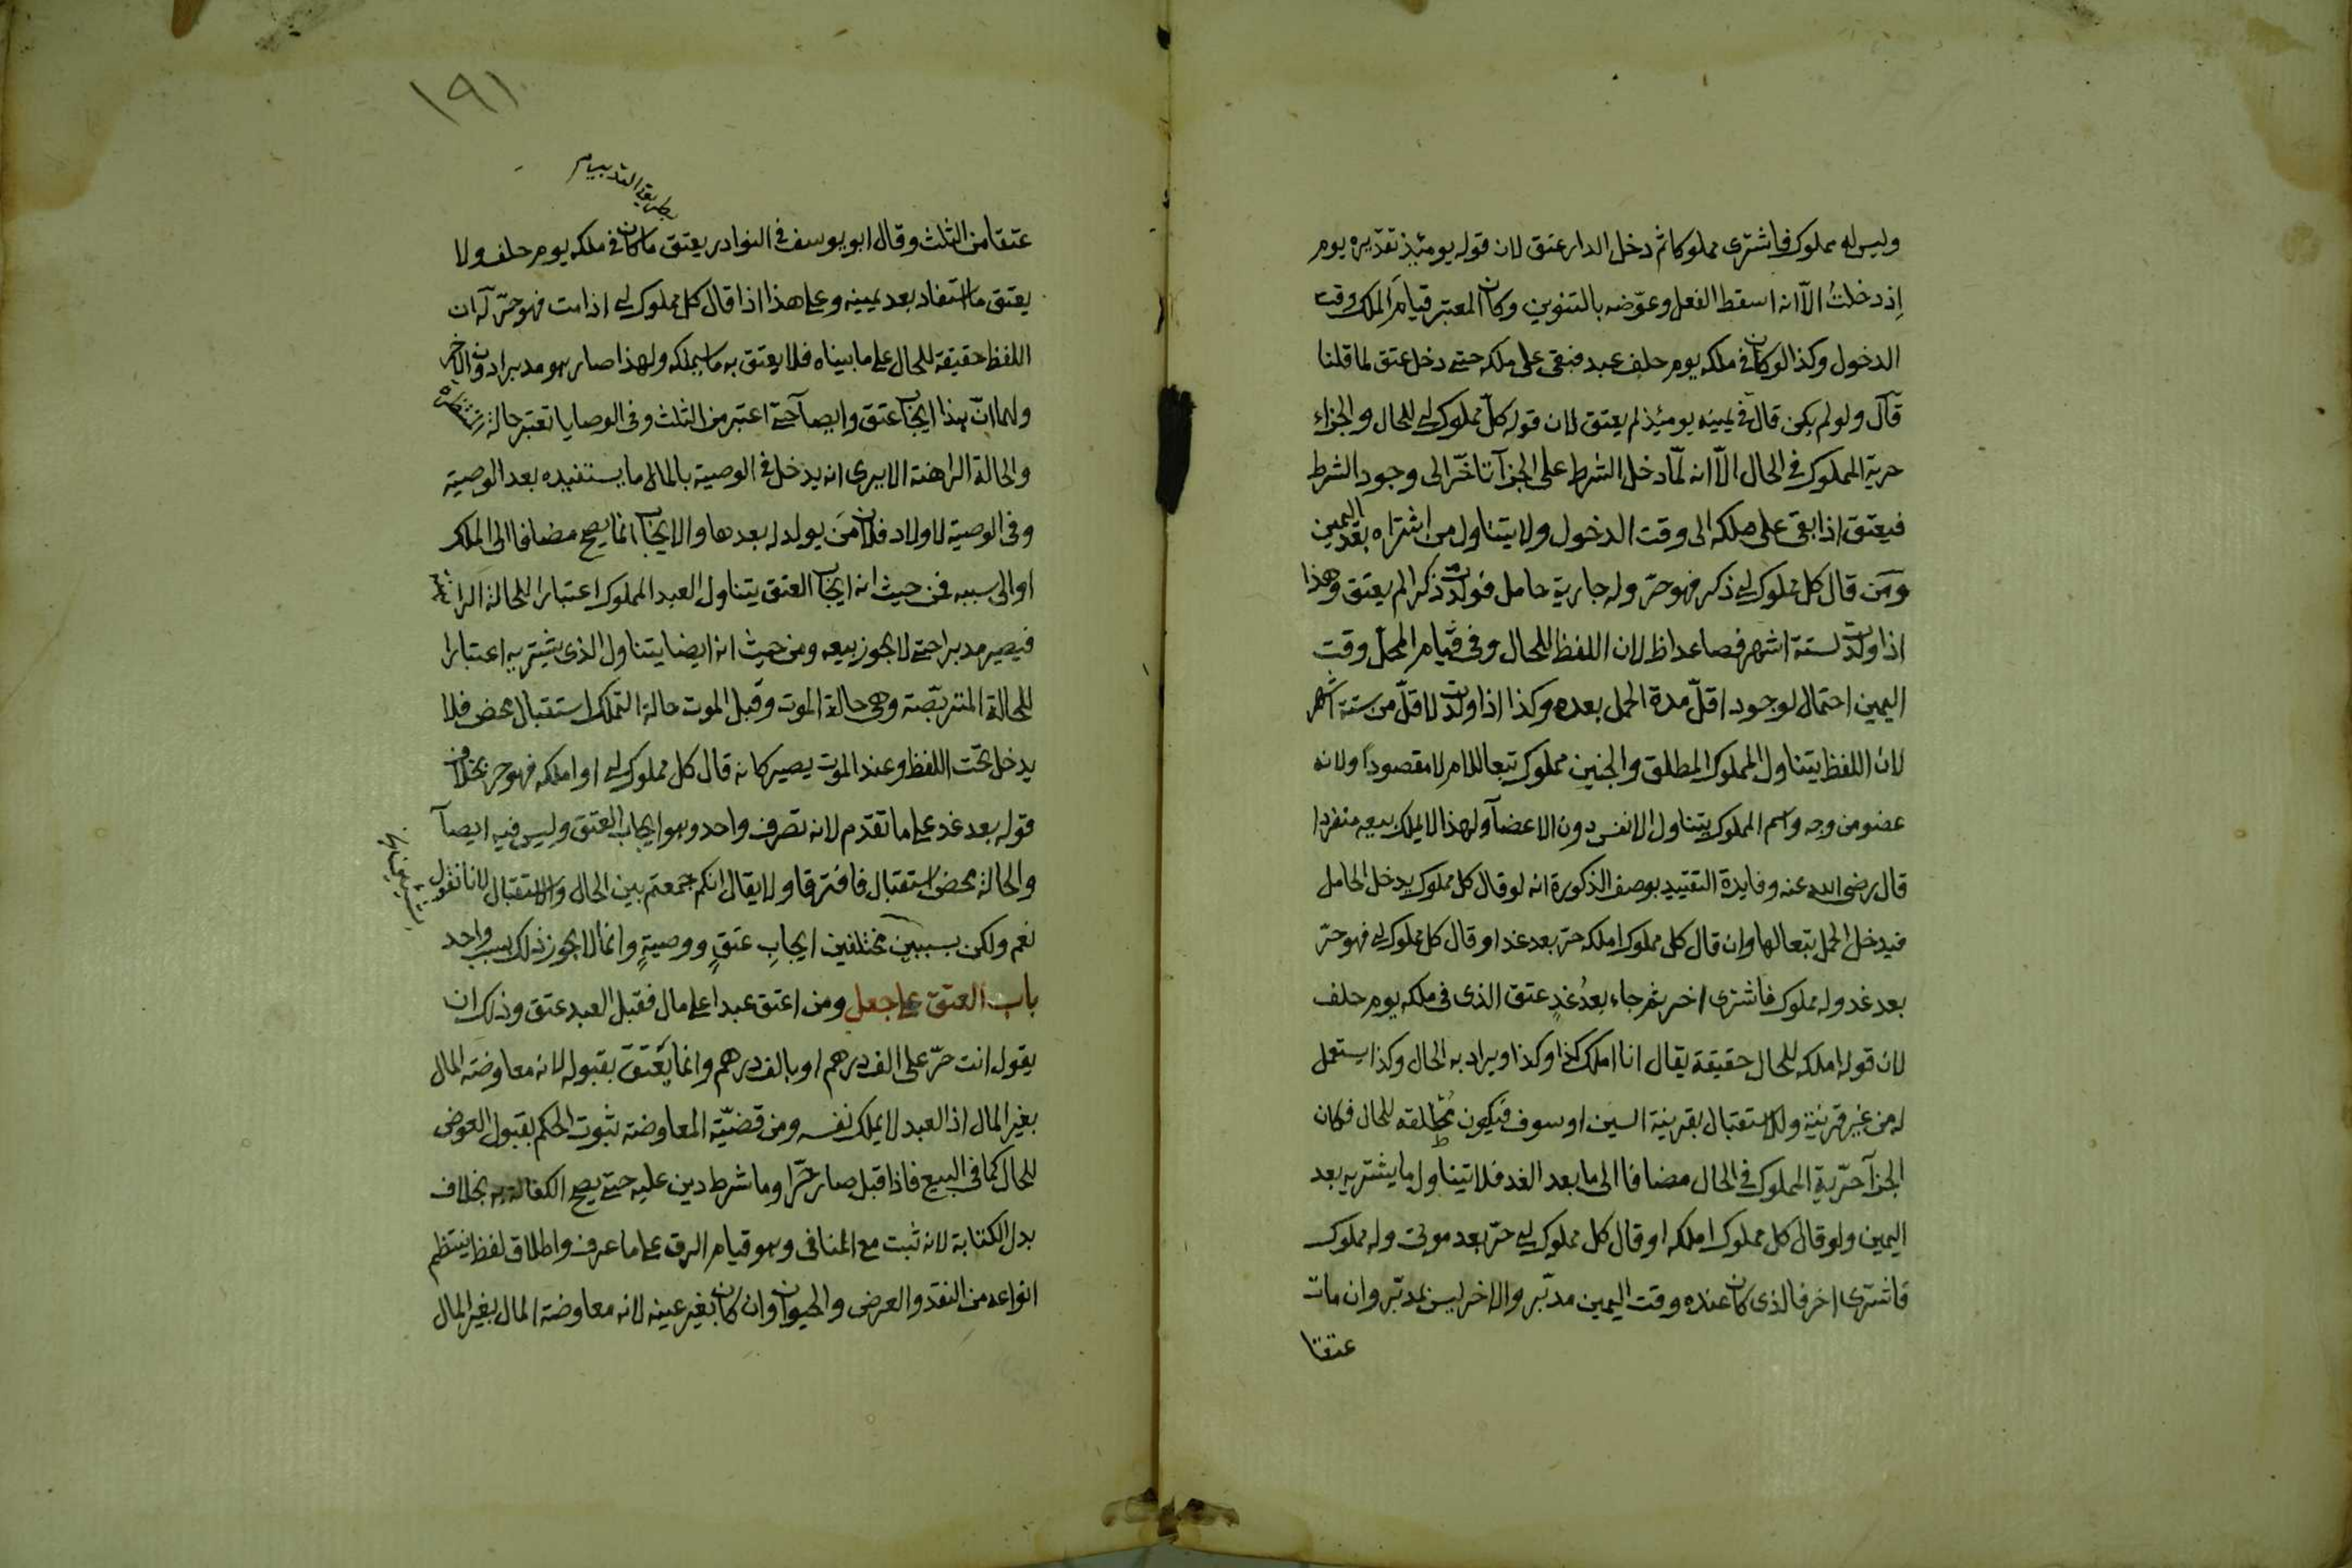 وليس له مملوك فاشترى مملوكا ثم دخل الدار عتق لان قوله يومئذ تقديره يوم
إذ دخلتُ الّا انه اسقط الفعل وعوّضه بالتنوين وكان المعتبر قيامَ الملك وقت
الدخول وكذا لو كان في ملكه يوم حلف عبد فبقى على ملكه حتى دخل عتق لما قلنا
قال ولو لم يكن قال في يمينه يومئذ لم يعتق لان قوله كلّ مملوك لي للحال والجزاء
حرية المملوك في الحال الّا انه لمّا دخل الشرط على الجزآ تأخّر الى وجود الشرط
فيعتق اذا بقى على ملكه الى وقت الدخول ولا يتناول من اشتراه بعد اليمين
ومَن قال كل مملوك لي ذكر فهو حرّ وله جارية حامل فولدت ذكرا لم يعتق وهذا
اذا ولدت لستة اشهر فصاعدا ظ لان اللفظ للحال وفى قيام الحمل وقت
اليمين احتمال لوجود اقلّ مدة الحمل بعده وكذا اذا ولدت لاقلّ من ستة اشهر
لان اللفظ يتناول المملوك المطلق والجنين مملوك تبعا للام لا مقصوداً ولانه
عضو من وجه واسم المملوك يتناول الانفس دون الاعضآ ولهذا لا يملك بيعه منفردا
قال رضى الله عنه وفايدة التقييد بوصف الذكورة انه لو قال كل مملوك يدخل الحامل
فيدخل الحمل تبعا لها وان قال كل مملوك املكه حرّ بعد غد او قال كل مملوك لي فهو حرّ
بعد غد وله مملوك فاشترى اخر ثم جاء بعدُ غدٍ عتق الذى فى ملكه يوم حلف
لان قوله املكه للحال حقيقة يقال انا املك كذا وكذا ويراد به الحال وكذا يستعمل
له من غير قرينة وللاستقبال بقرينة السين او سوف فيكون مُطلقه للحال فكان
الجزآ حرّيةِ المملوك فى الحال مضافا الى ما بعد الغد فلا يتناول ما يشتريه بعد
اليمين ولو قال كل مملوك املكه او قال كل مملوك لي حرّ بعد موتى وله مملوك
فاشترى اخر فالذى كان عنده وقت اليمين مدبّر والاخر ليس بمدبّر وان مات
عتقا
١٩١
عتقا من الثلث وقال ابو يوسف فى النوادر يعتق ما كان فى ملكه يوم حلف ولا
يعتق ما استفاد بعد يمينه وعلى هذا اذا قال كل مملوك لي اذا مت فهو حرّ له ان
اللفظ حقيقة للحال على ما بيناه فلا يعتق به ما سيملكه ولهذا صار هو مدبرا دون الاخر
ولهما انّ هذا ايجاب عتق وايصآ حتى اعتبر من الثلث وفى الوصايا تعتبر حالة
والحالة الراهنة الا يرى انه يدخل فى الوصية بالمال ما يستفيده بعد الوصية
وفى الوصية لاولاد فلان مَن يولد له بعدها والايجاب انما يصح مضافا الى الملك
او الى سببه فمن حيث انه ايجاب العتق يتناول العبد المملوك اعتبارا للحالة الراهنة
فيصير مدبرا حتى لا يجوز بيعه ومن حيث انه ايضا يتناول الذى يشتريه اعتبارا
للحالة المتربّصة وهى حالة الموت وقبل الموت حالة التملك استقبال محض فلا
يدخل تحت اللفظ وعند الموت يصير كانه قال كل مملوك لي او املكه فهو حر بخلاف
قوله بعد غد على ما تقدّم لانه تصرف واحد وهو ايجاب العتق وليس فيه ايصآ
والحالة محض استقبال فافترقا ولا يقال انكم جمعتم بين الحال والاستقبال لانا نقول
نعم ولكن بسببين مختلفين ايجابِ عتقٍ ووصيةٍ وانما لا يجوز ذلك بسبب واحد
باب العتق على جعل ومن اعتق عبدا على مال فقبل العبد عتق وذلك ان
يقول انت حرّ على الف درهم او بالف درهم وانما يَعتق بقبوله لانه معاوضة المال
بغير المال اذ العبد لا يملك نفسه ومن قضيّة المعاوضة ثبوت الحكم بقبول العوض
للحال كما فى البيع فاذا قبل صار حرّا وما شرط دين عليه حتى يصح الكفالة به بخلاف
بدل الكتابة لانه ثبت مع المنافى وهو قيام الرق على ما عرف واطلاق لفظ ينتظم
انواعه من النقد والعرض والحيوان وان كان بغير عينه لانه معاوضة المال بغير المال